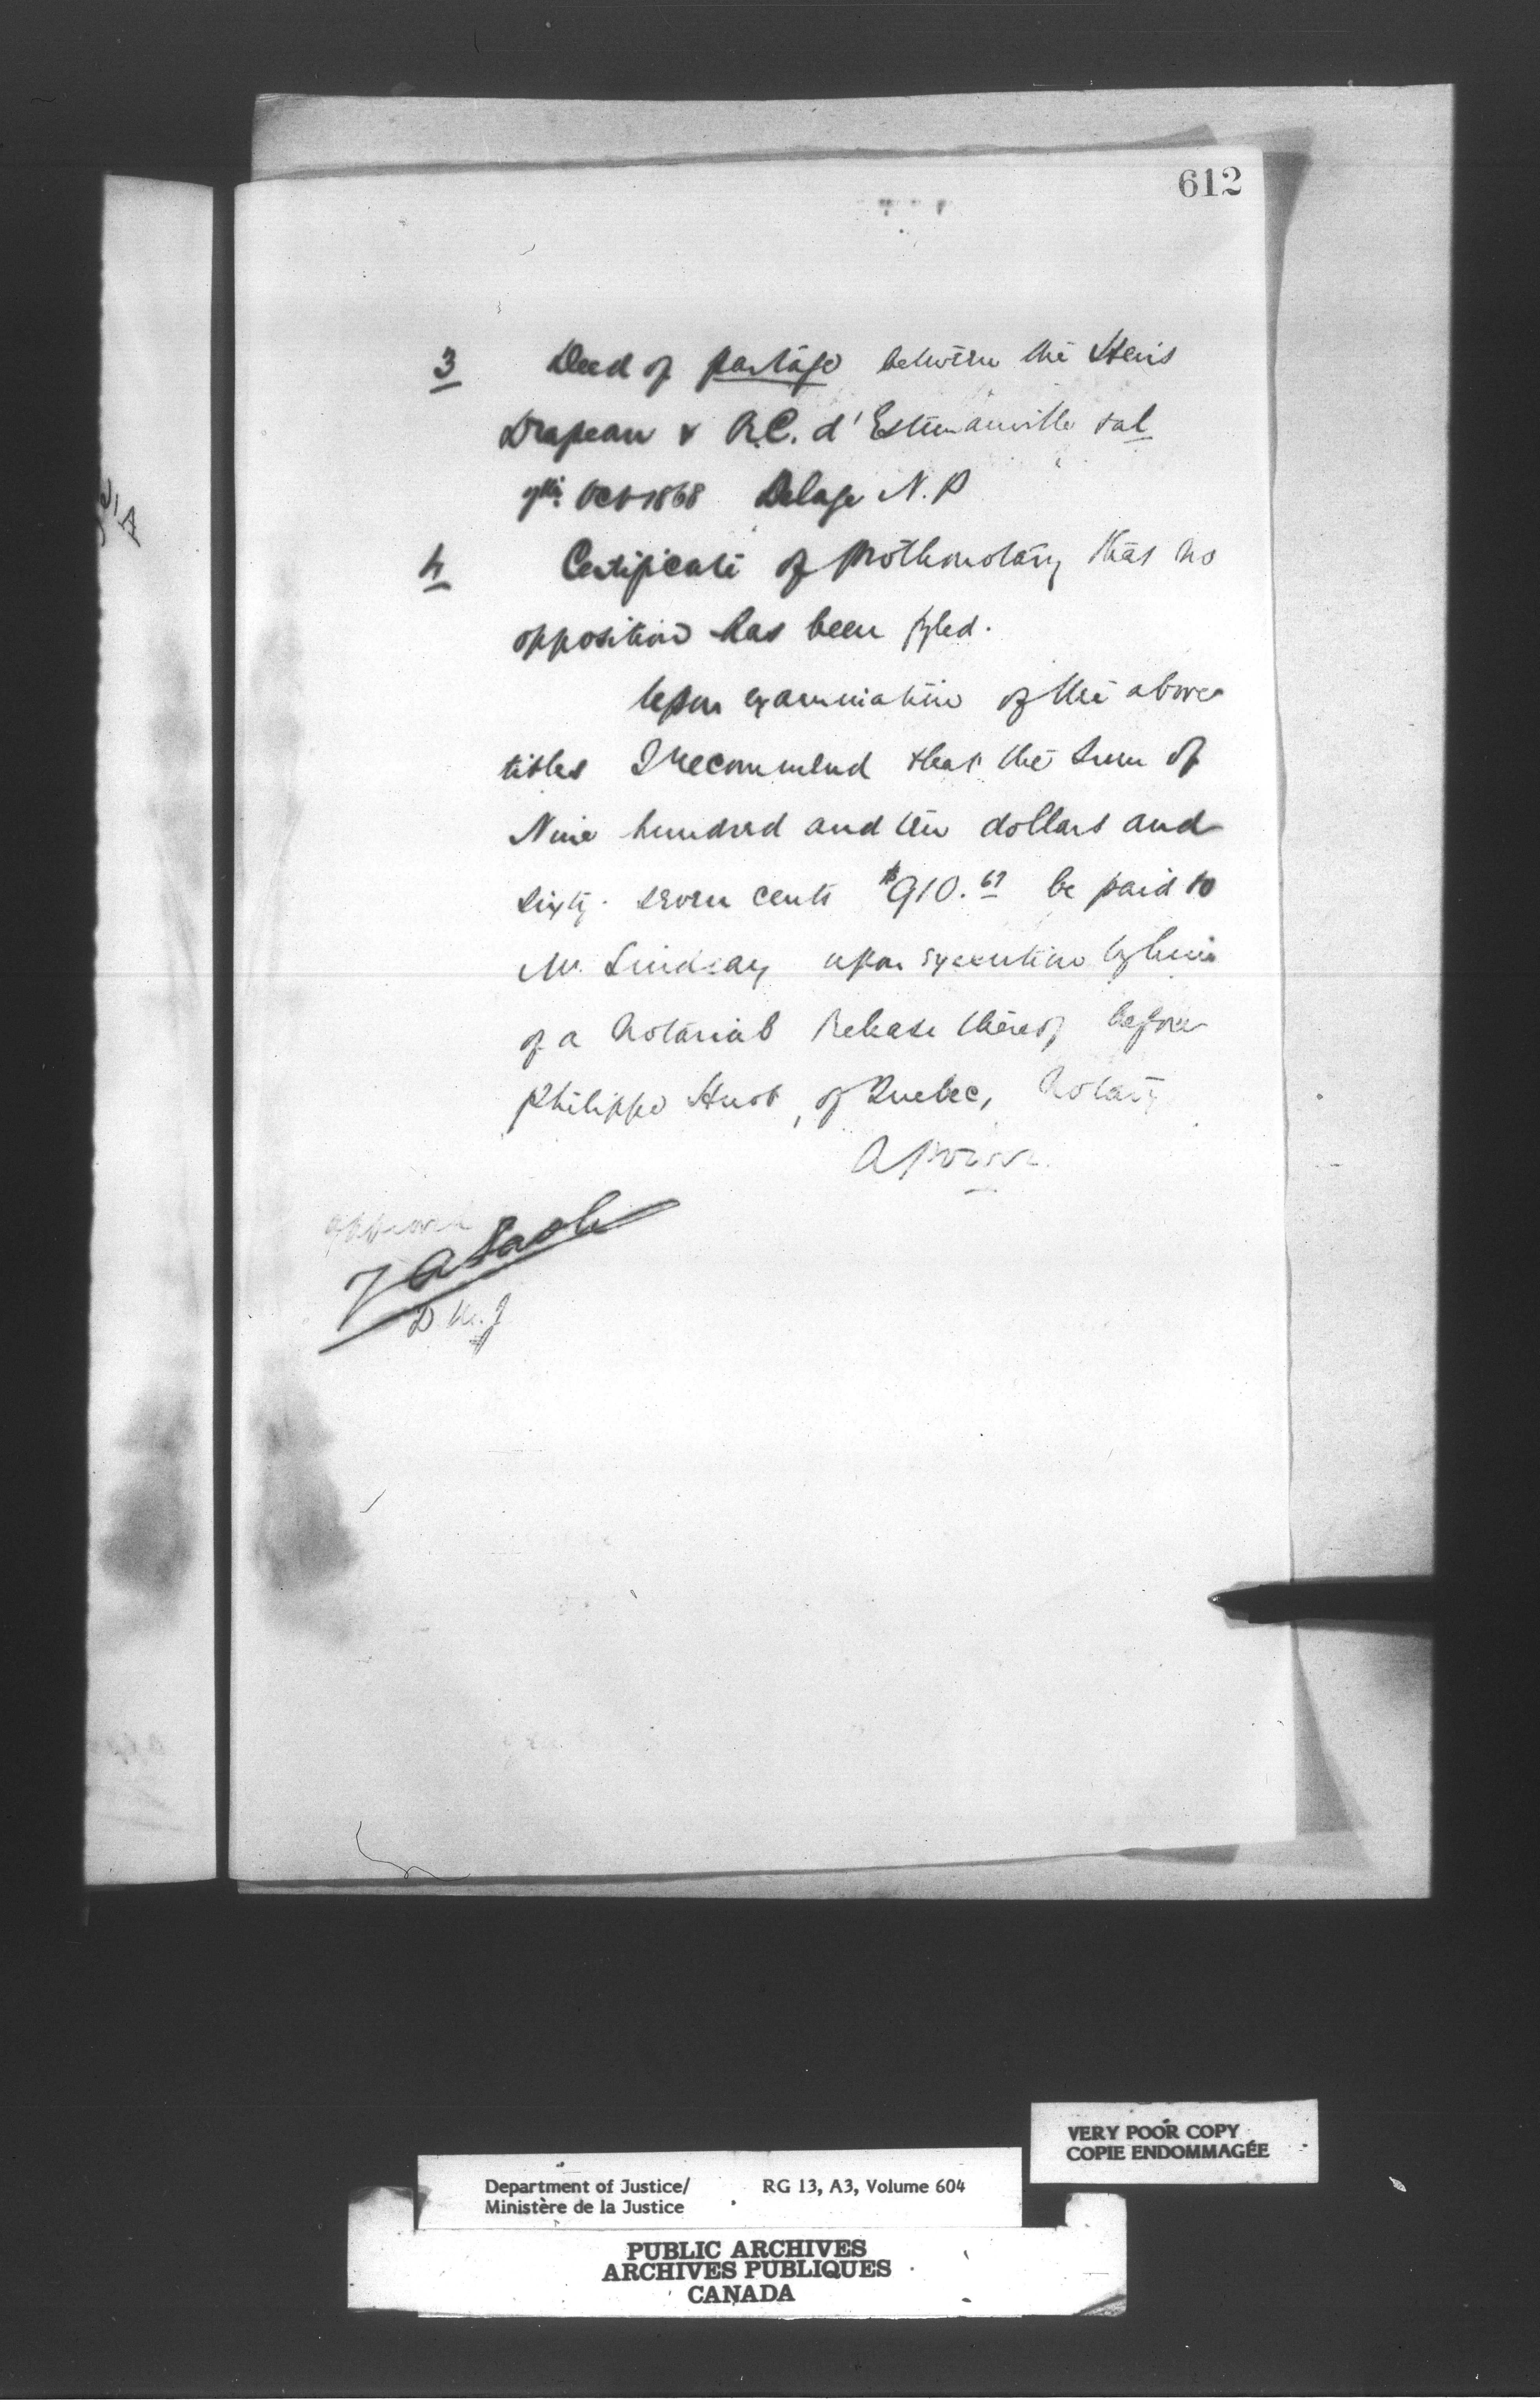 612
3 Deed of partage between the Heirs
Drapeau & A.C. d'Estimauville & al
7th Oct 1868 Delage N.P
4 Certificate of Prothonotary that no
opposition has been fyled.
Upon examination of the above
titles I recommend that the sum of
Nine hundred and ten dollars and
sixty-seven cents $910.67 be paid to
Mr. Lindsay upon execution by him
of a Notarial Release thereof before
Philippe Huot, of Quebec, Notary
A Power
approved
D M. J
VERY POOR COPY
COPIE ENDOMMAGÉE
Department of Justice/ RG 13, A3, Volume 604
Ministère de la Justice
PUBLIC ARCHIVES
ARCHIVES PUBLIQUES
CANADA